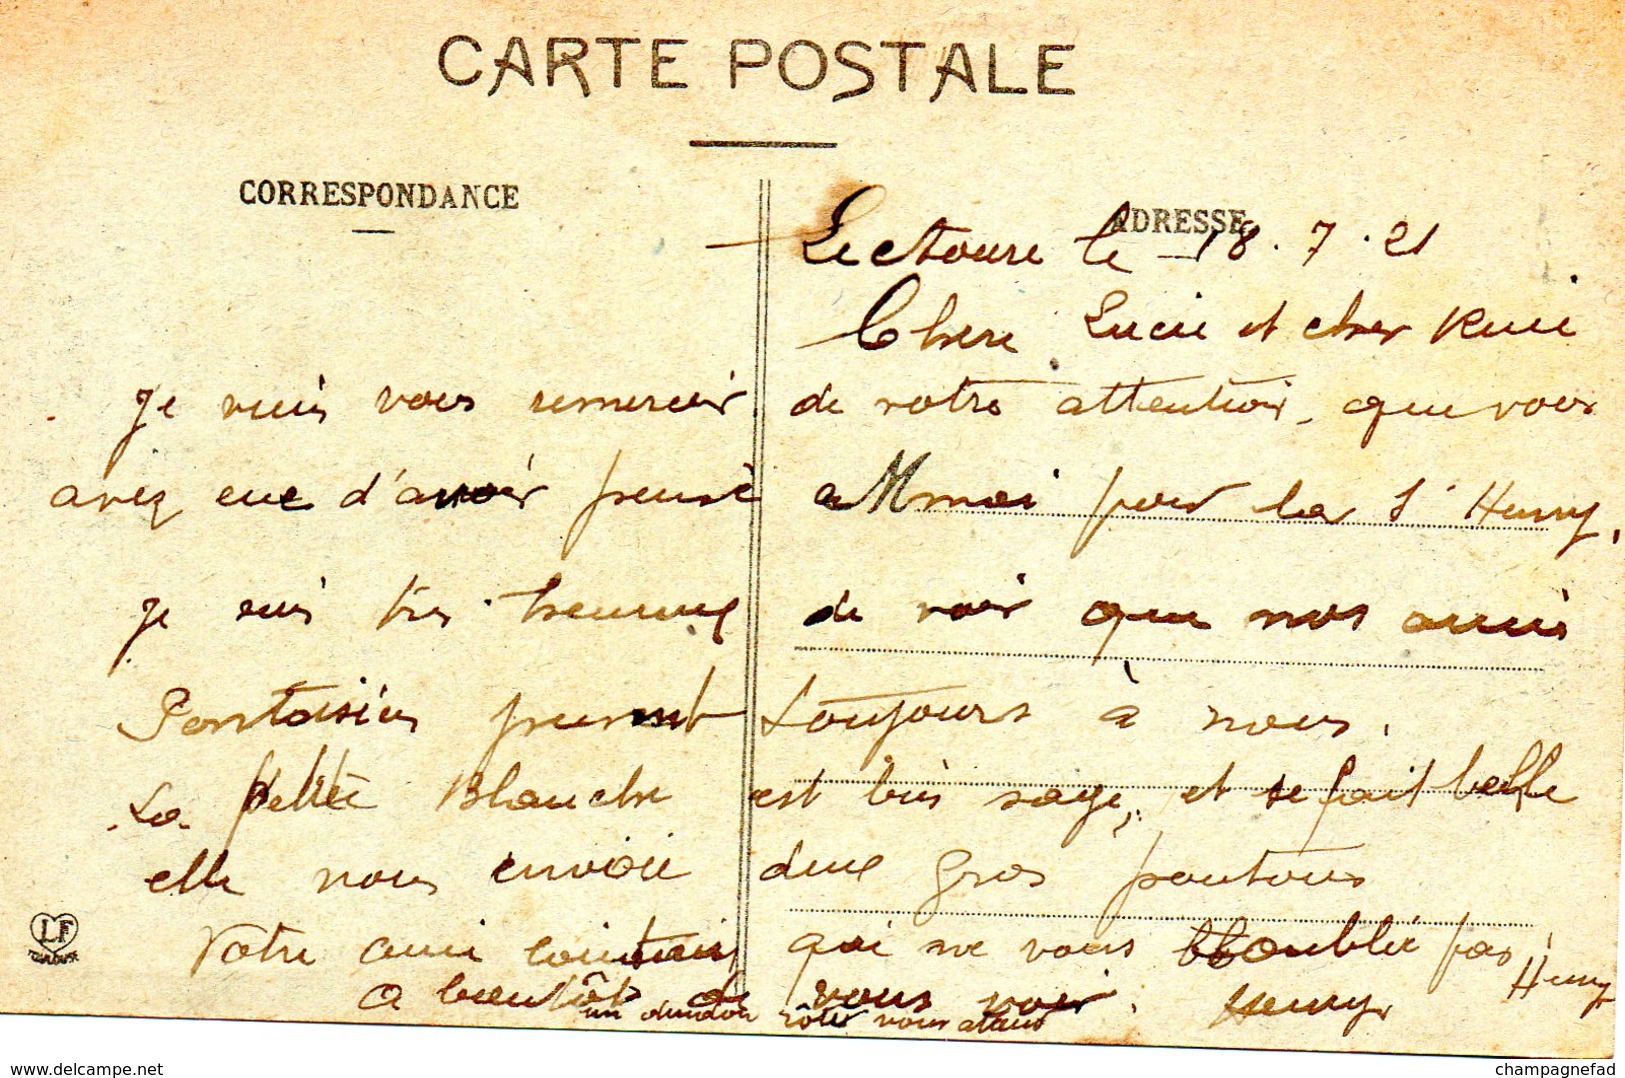 CARTE POSTALE
CORRESPONDANCE
ADRESSE
Lectoure le 18.7.21
Chere Lucie et cher
Je viens vous remercier de votre attention, que vous
avez eue d'avoir pensé a Mmoi pour la St Henry,
je suis tres heureux de voir que nos amis
Pontoisien pensent toujours à nous.
La petite Blanche est bien sage, et se fait belle
elle vous envoie deux gros poutous
Votre ami lointain qui ne vous oublie pas, Henry
A bientôt de vous voir. Henry
un dindon rôti vous attend
LF
TOULOUSE
delcampe.net
champagnefad